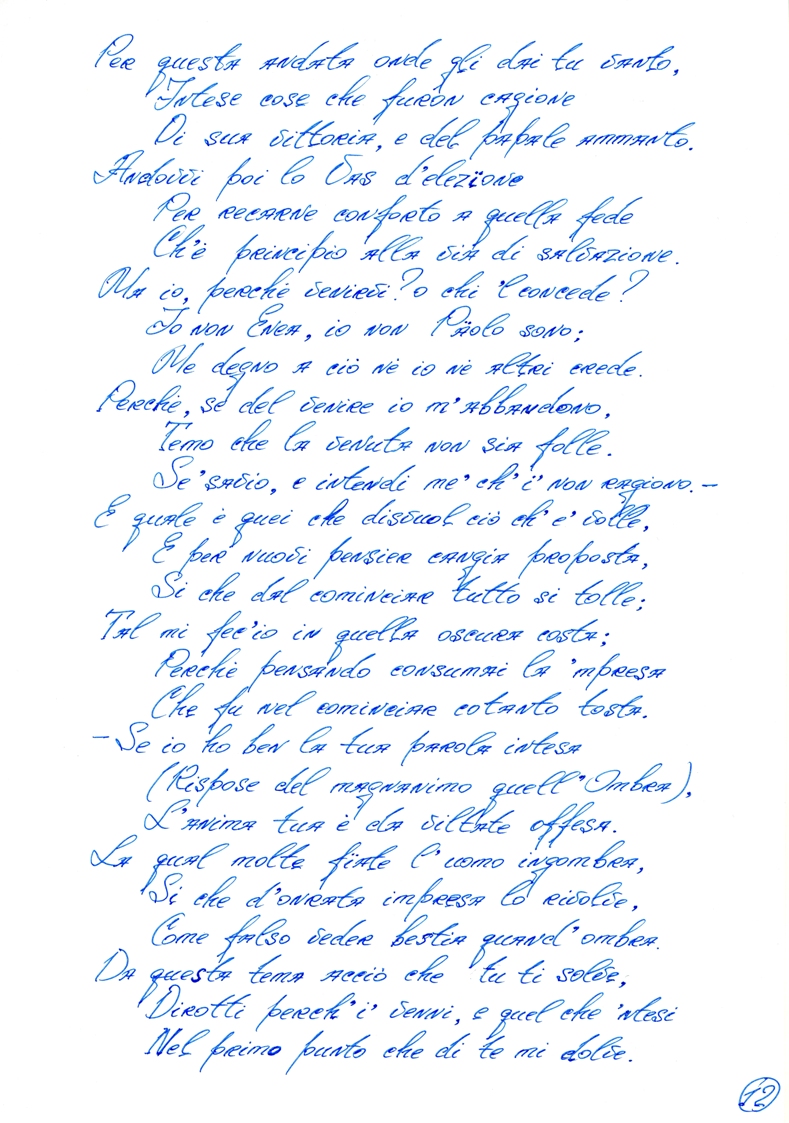 Per questa andata onde gli dai tu vanto,
Intese cose che furon cagione
Di sua vittoria, e del papale ammanto.
Andovvi poi lo Vas d'elezïone
Per recarne conforto a quella fede
Ch'è principio alla via di salvazione.
Ma io, perchè venirvi? o chi 'l concede?
Io non Enea, io non Päolo sono;
Me degno a ciò nè io nè altri crede.
Perchè, se del venire io m'abbandono,
Temo che la venuta non sia folle.
Se' savio, e intendi me' ch' i' non ragiono. –
E quale è quei che disvuol ciò ch' e' volle,
E per nuovi pensier cangia proposta,
Si che dal cominciar tutto si tolle;
Tal mi fec'io in quella oscura costa;
Perchè pensando consumai la 'mpresa
Che fu nel cominciar cotanto tosta.
– Se io ho ben la tua parola intesa
(Rispose del magnanimo quell' Ombra),
L'anima tua è da viltate offesa.
La qual molte fïate l'uomo ingombra,
Si che d'onrata impresa lo rivolve,
Come falso veder bestia quand' ombra.
Da questa tema acciò che tu ti solve,
Dirotti perch' i' venni, e quel che 'ntesi
Nel primo punto che di te mi dolve.
12